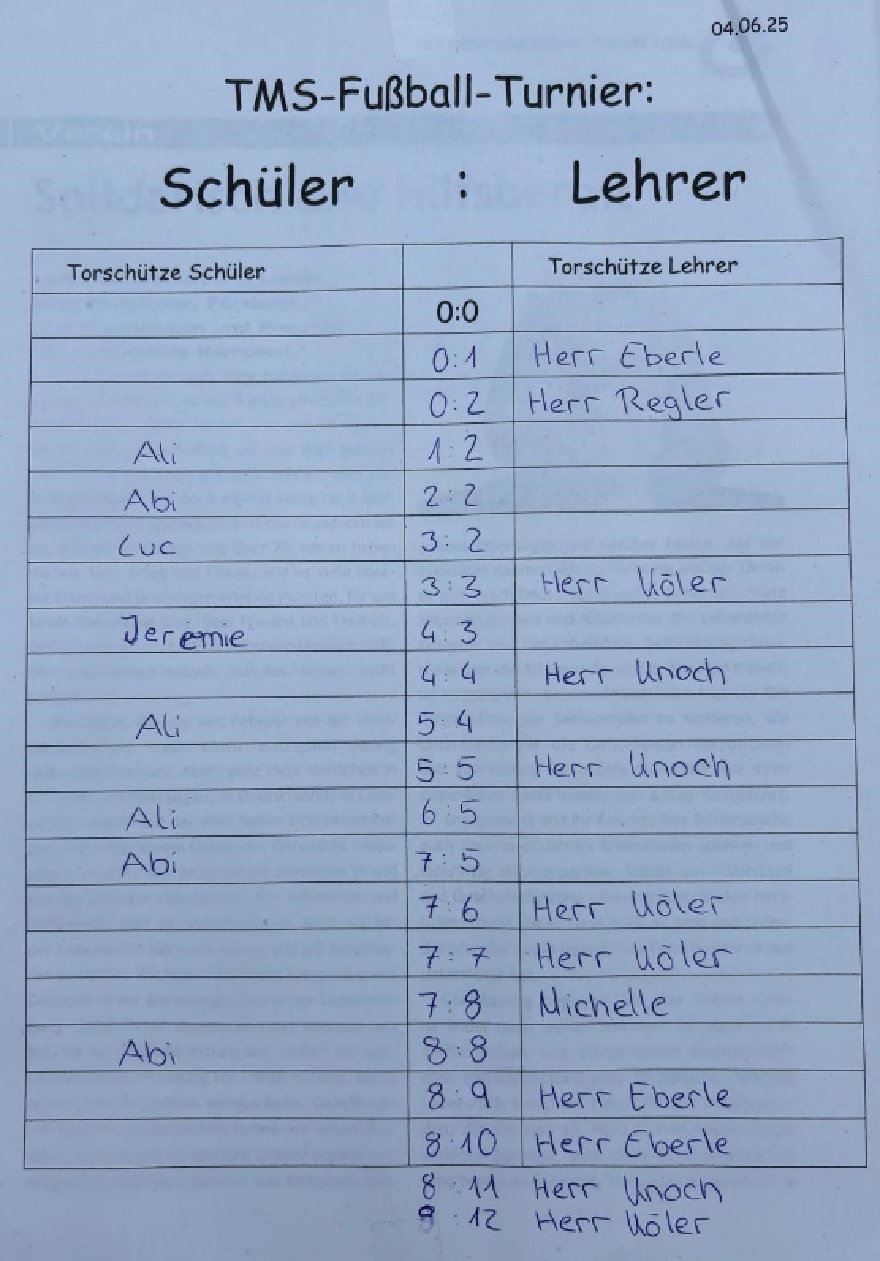 04.06.25
TMS-Fußball-Turnier:
Schüler : Lehrer
Torschütze Schüler Torschütze Lehrer
0:0
0:1 Herr Eberle
0:2 Herr Regler
Ali 1:2
Abi 2:2
Luc 3:2
3:3 Herr Köler
Jeremie 4:3
4:4 Herr Knoch
Ali 5:4
5:5 Herr Knoch
Ali 6:5
Abi 7:5
7:6 Herr Köler
7:7 Herr Köler
7:8 Michelle
Abi 8:8
8:9 Herr Eberle
8:10 Herr Eberle
8:11 Herr Knoch
8:12 Herr Köler